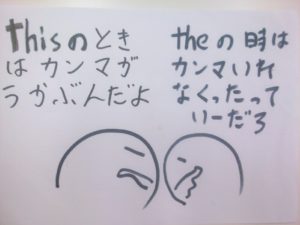 thisのとき
はカンマガ
うかぶんだよ
theの時は
カンマいれ
なくったって
いーだろ